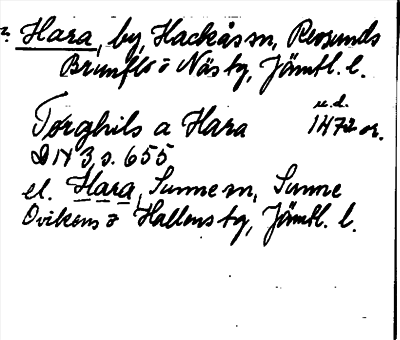 ? Hara, by, Hackås sn, Revsunds
Brunflo o Näs tg, Jämtl. l.
u.d.
Torghils a Hara 1472 or.
DN 3, s. 655
el. Hara, Sunne sn, Sunne
Ovikens o Hallens tg, Jämtl. l.